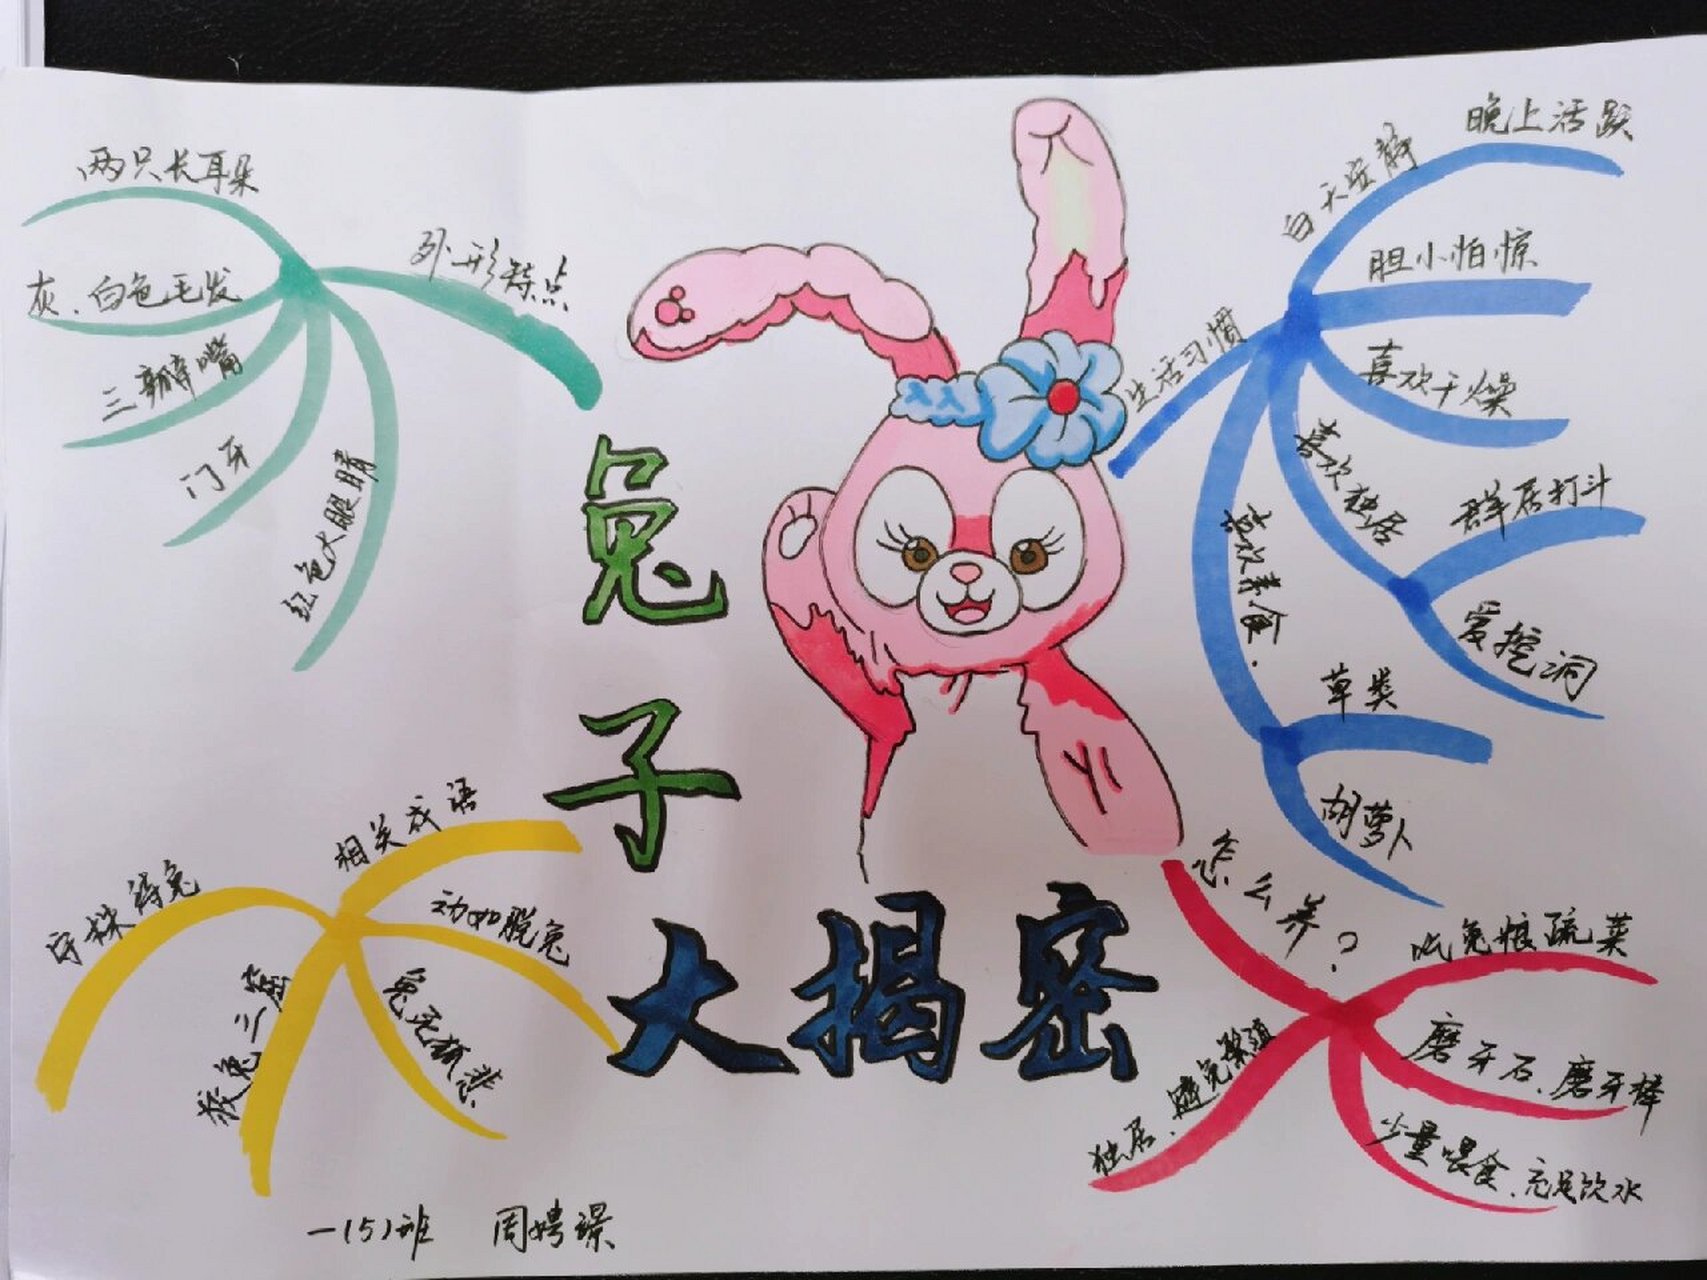 兔子
大揭密
外形特点
两只长耳朵
灰、白色毛发
三瓣嘴
门牙
红色大眼睛
生活习惯
白天安静
晚上活跃
胆小怕惊
喜欢干燥
喜欢独居
群居打斗
爱挖洞
喜欢素食.
草类
胡萝卜
相关成语
守株待兔
狡兔三窟
兔死狐悲
动如脱兔
怎么养?
吃兔粮疏菜
磨牙石、磨牙棒
少量喂食、充足饮水
独居、避免繁殖
一(5)班 周娉璟